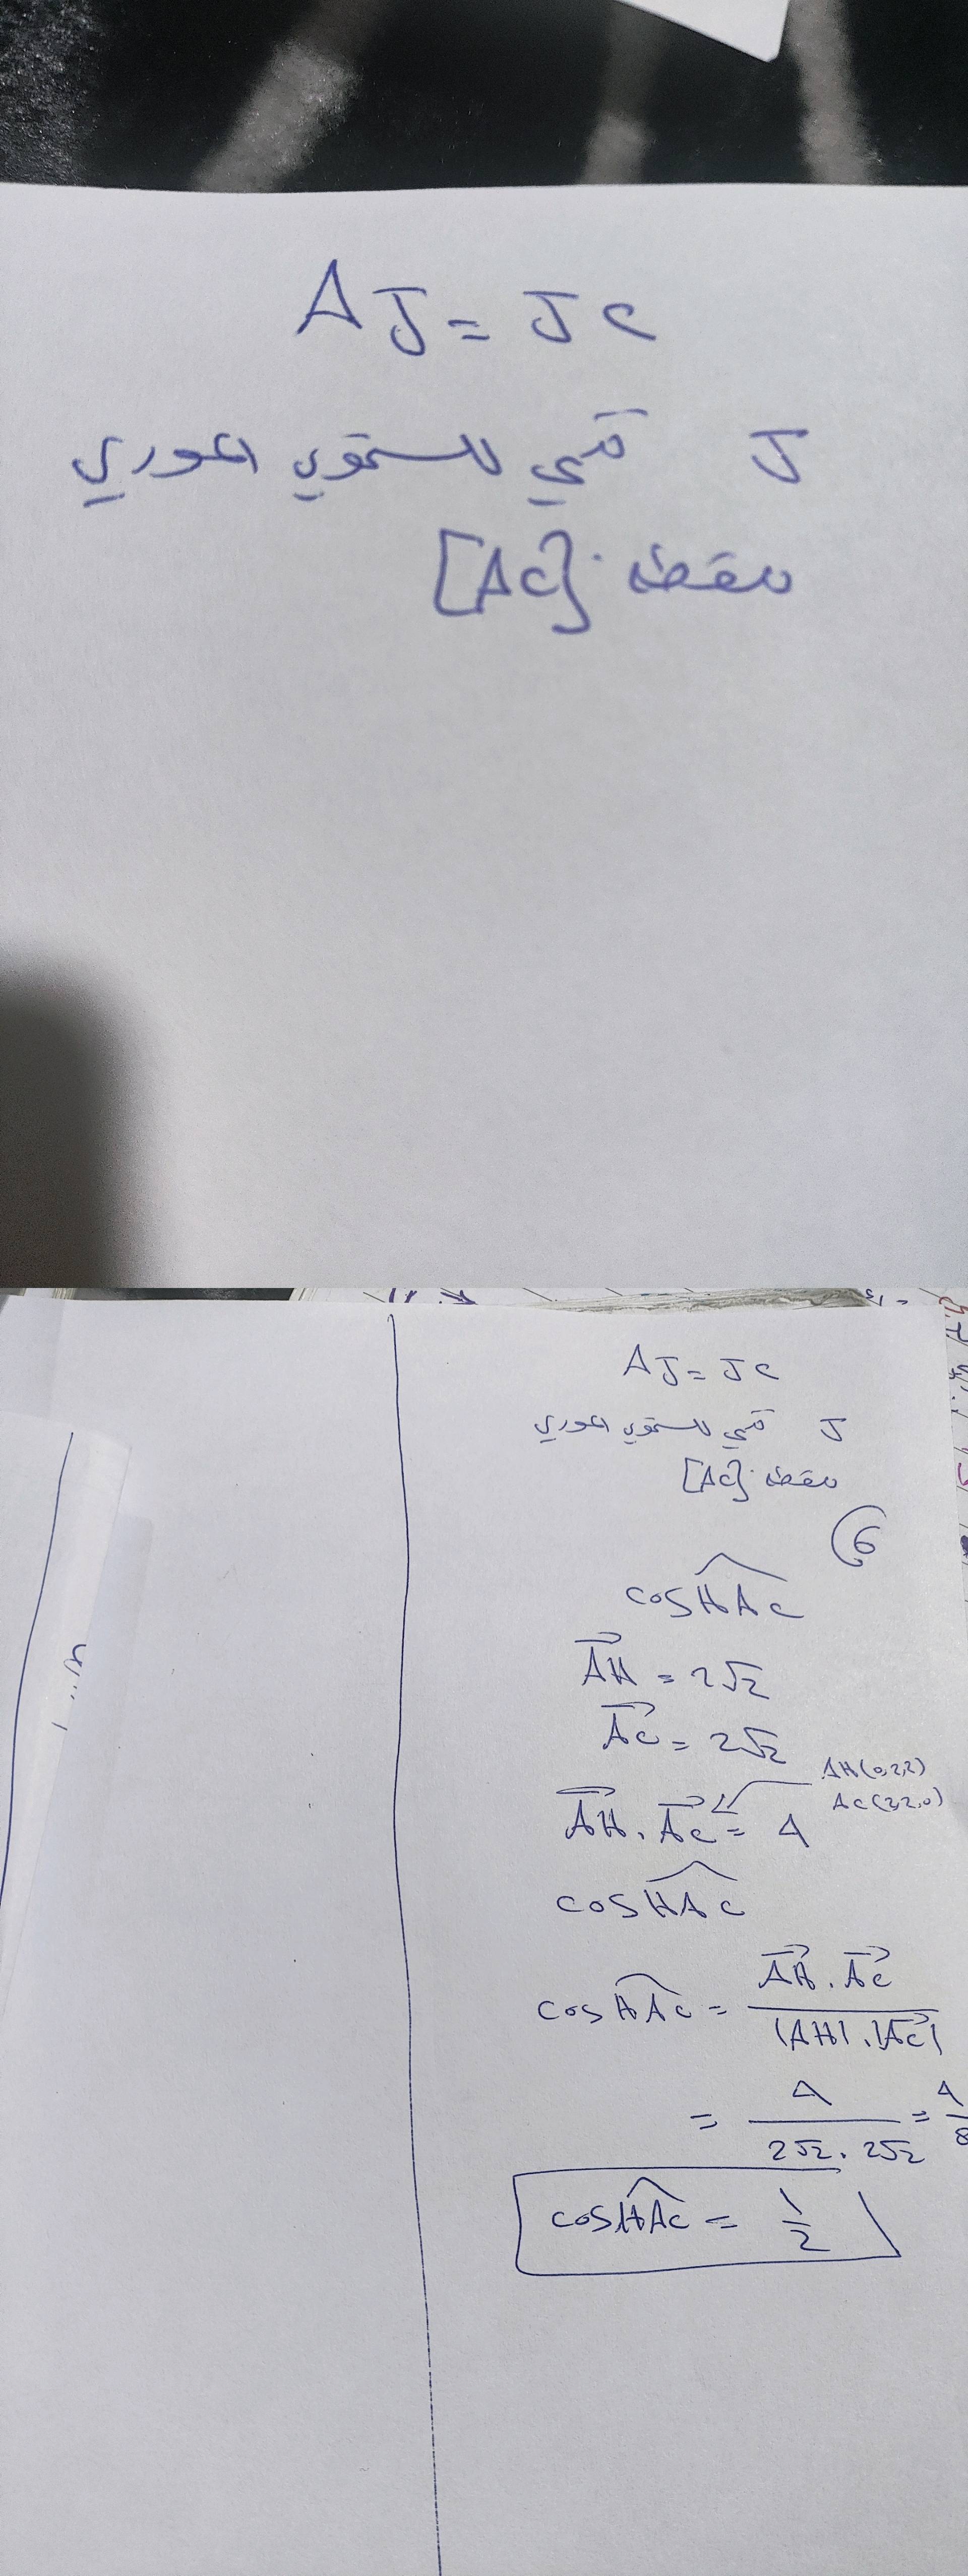 AJ = JC
J تنتمي للمستوي المحوري
للقطعة [AC]
AJ = JC
J تنتمي للمستوي المحوري
للقطعة [AC]
6
cos HAC
AH = 2√2
AC = 2√2
AH(0,2,2)
AC(2,2,0)
AH . AC = 4
cos HAC
cos HAC = AH . AC / |AH| . |AC|
= 4 / 2√2 . 2√2 = 4 / 8
cos HAC = 1/2